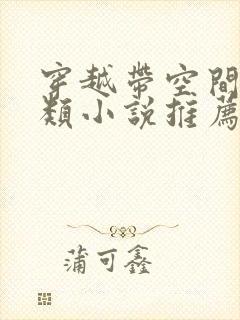 穿越帶空間
類小說推薦
蒲可鑫